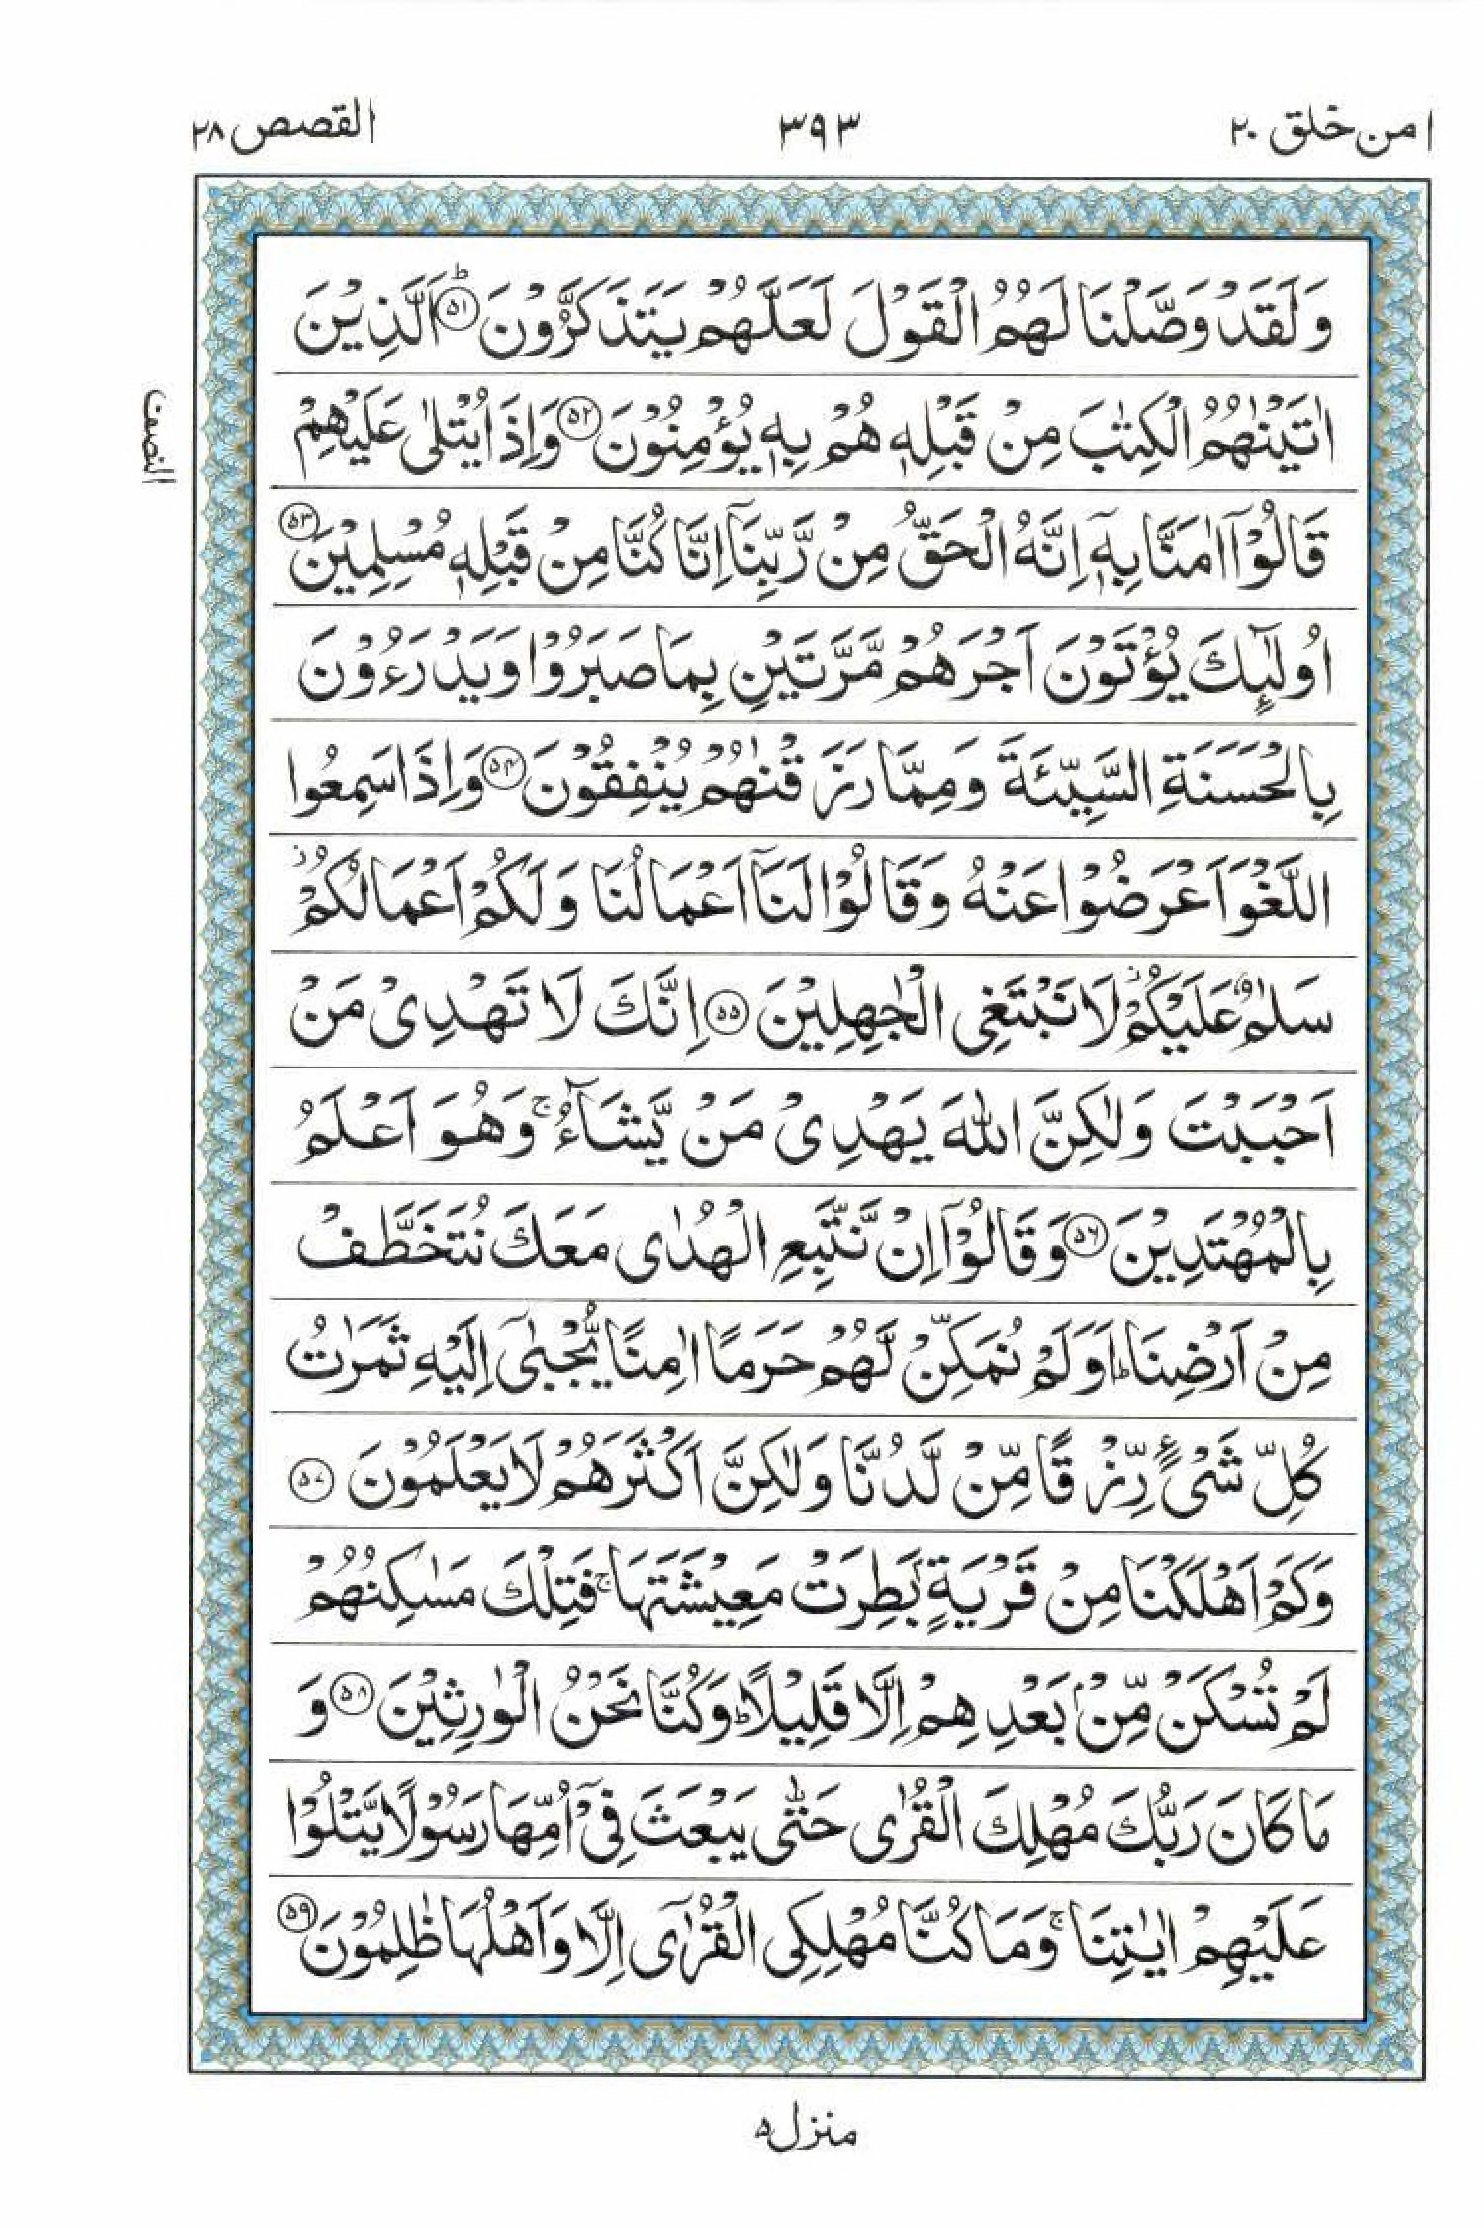 امن خلق ٢٠
٣٩٣
القصص ٢٨
وَلَقَدْ وَصَّلْنَا لَهُمُ الْقَوْلَ لَعَلَّهُمْ يَتَذَكَّرُوْنَ ۝۵۱ؕ اَلَّذِيْنَ
اٰتَيْنٰهُمُ الْكِتٰبَ مِنْ قَبْلِهٖ هُمْ بِهٖ يُؤْمِنُوْنَ ۝۵۲ وَاِذَا يُتْلٰى عَلَيْهِمْ
قَالُوْٓا اٰمَنَّا بِهٖٓ اِنَّهُ الْحَقُّ مِنْ رَّبِّنَآ اِنَّا كُنَّا مِنْ قَبْلِهٖ مُسْلِمِيْنَ ۝۵۳
اُولٰٓئِكَ يُؤْتَوْنَ اَجْرَهُمْ مَّرَّتَيْنِ بِمَا صَبَرُوْا وَيَدْرَءُوْنَ
بِالْحَسَنَةِ السَّيِّئَةَ وَمِمَّا رَزَقْنٰهُمْ يُنْفِقُوْنَ ۝۵۴ وَاِذَا سَمِعُوا
اللَّغْوَ اَعْرَضُوْا عَنْهُ وَقَالُوْا لَنَآ اَعْمَالُنَا وَلَكُمْ اَعْمَالُكُمْ ز
سَلٰمٌ عَلَيْكُمْ ز لَا نَبْتَغِى الْجٰهِلِيْنَ ۝۵۵ اِنَّكَ لَا تَهْدِىْ مَنْ
اَحْبَبْتَ وَلٰكِنَّ اللّٰهَ يَهْدِىْ مَنْ يَّشَآءُ ۚ وَهُوَ اَعْلَمُ
بِالْمُهْتَدِيْنَ ۝۵۶ وَقَالُوْٓا اِنْ نَّتَّبِعِ الْهُدٰى مَعَكَ نُتَخَطَّفْ
مِنْ اَرْضِنَا ؕ اَوَلَمْ نُمَكِّنْ لَّهُمْ حَرَمًا اٰمِنًا يُّجْبٰٓى اِلَيْهِ ثَمَرٰتُ
كُلِّ شَىْءٍ رِّزْقًا مِّنْ لَّدُنَّا وَلٰكِنَّ اَكْثَرَهُمْ لَا يَعْلَمُوْنَ ۝۵۷
وَكَمْ اَهْلَكْنَا مِنْ قَرْيَةٍۭ بَطِرَتْ مَعِيْشَتَهَا ۚ فَتِلْكَ مَسٰكِنُهُمْ
لَمْ تُسْكَنْ مِّنْۢ بَعْدِهِمْ اِلَّا قَلِيْلًا ؕ وَكُنَّا نَحْنُ الْوٰرِثِيْنَ ۝۵۸ وَ
مَا كَانَ رَبُّكَ مُهْلِكَ الْقُرٰى حَتّٰى يَبْعَثَ فِىْٓ اُمِّهَا رَسُوْلًا يَّتْلُوْا
عَلَيْهِمْ اٰيٰتِنَا ۚ وَمَا كُنَّا مُهْلِكِى الْقُرٰٓى اِلَّا وَاَهْلُهَا ظٰلِمُوْنَ ۝۵۹
النصف
منزل ۵